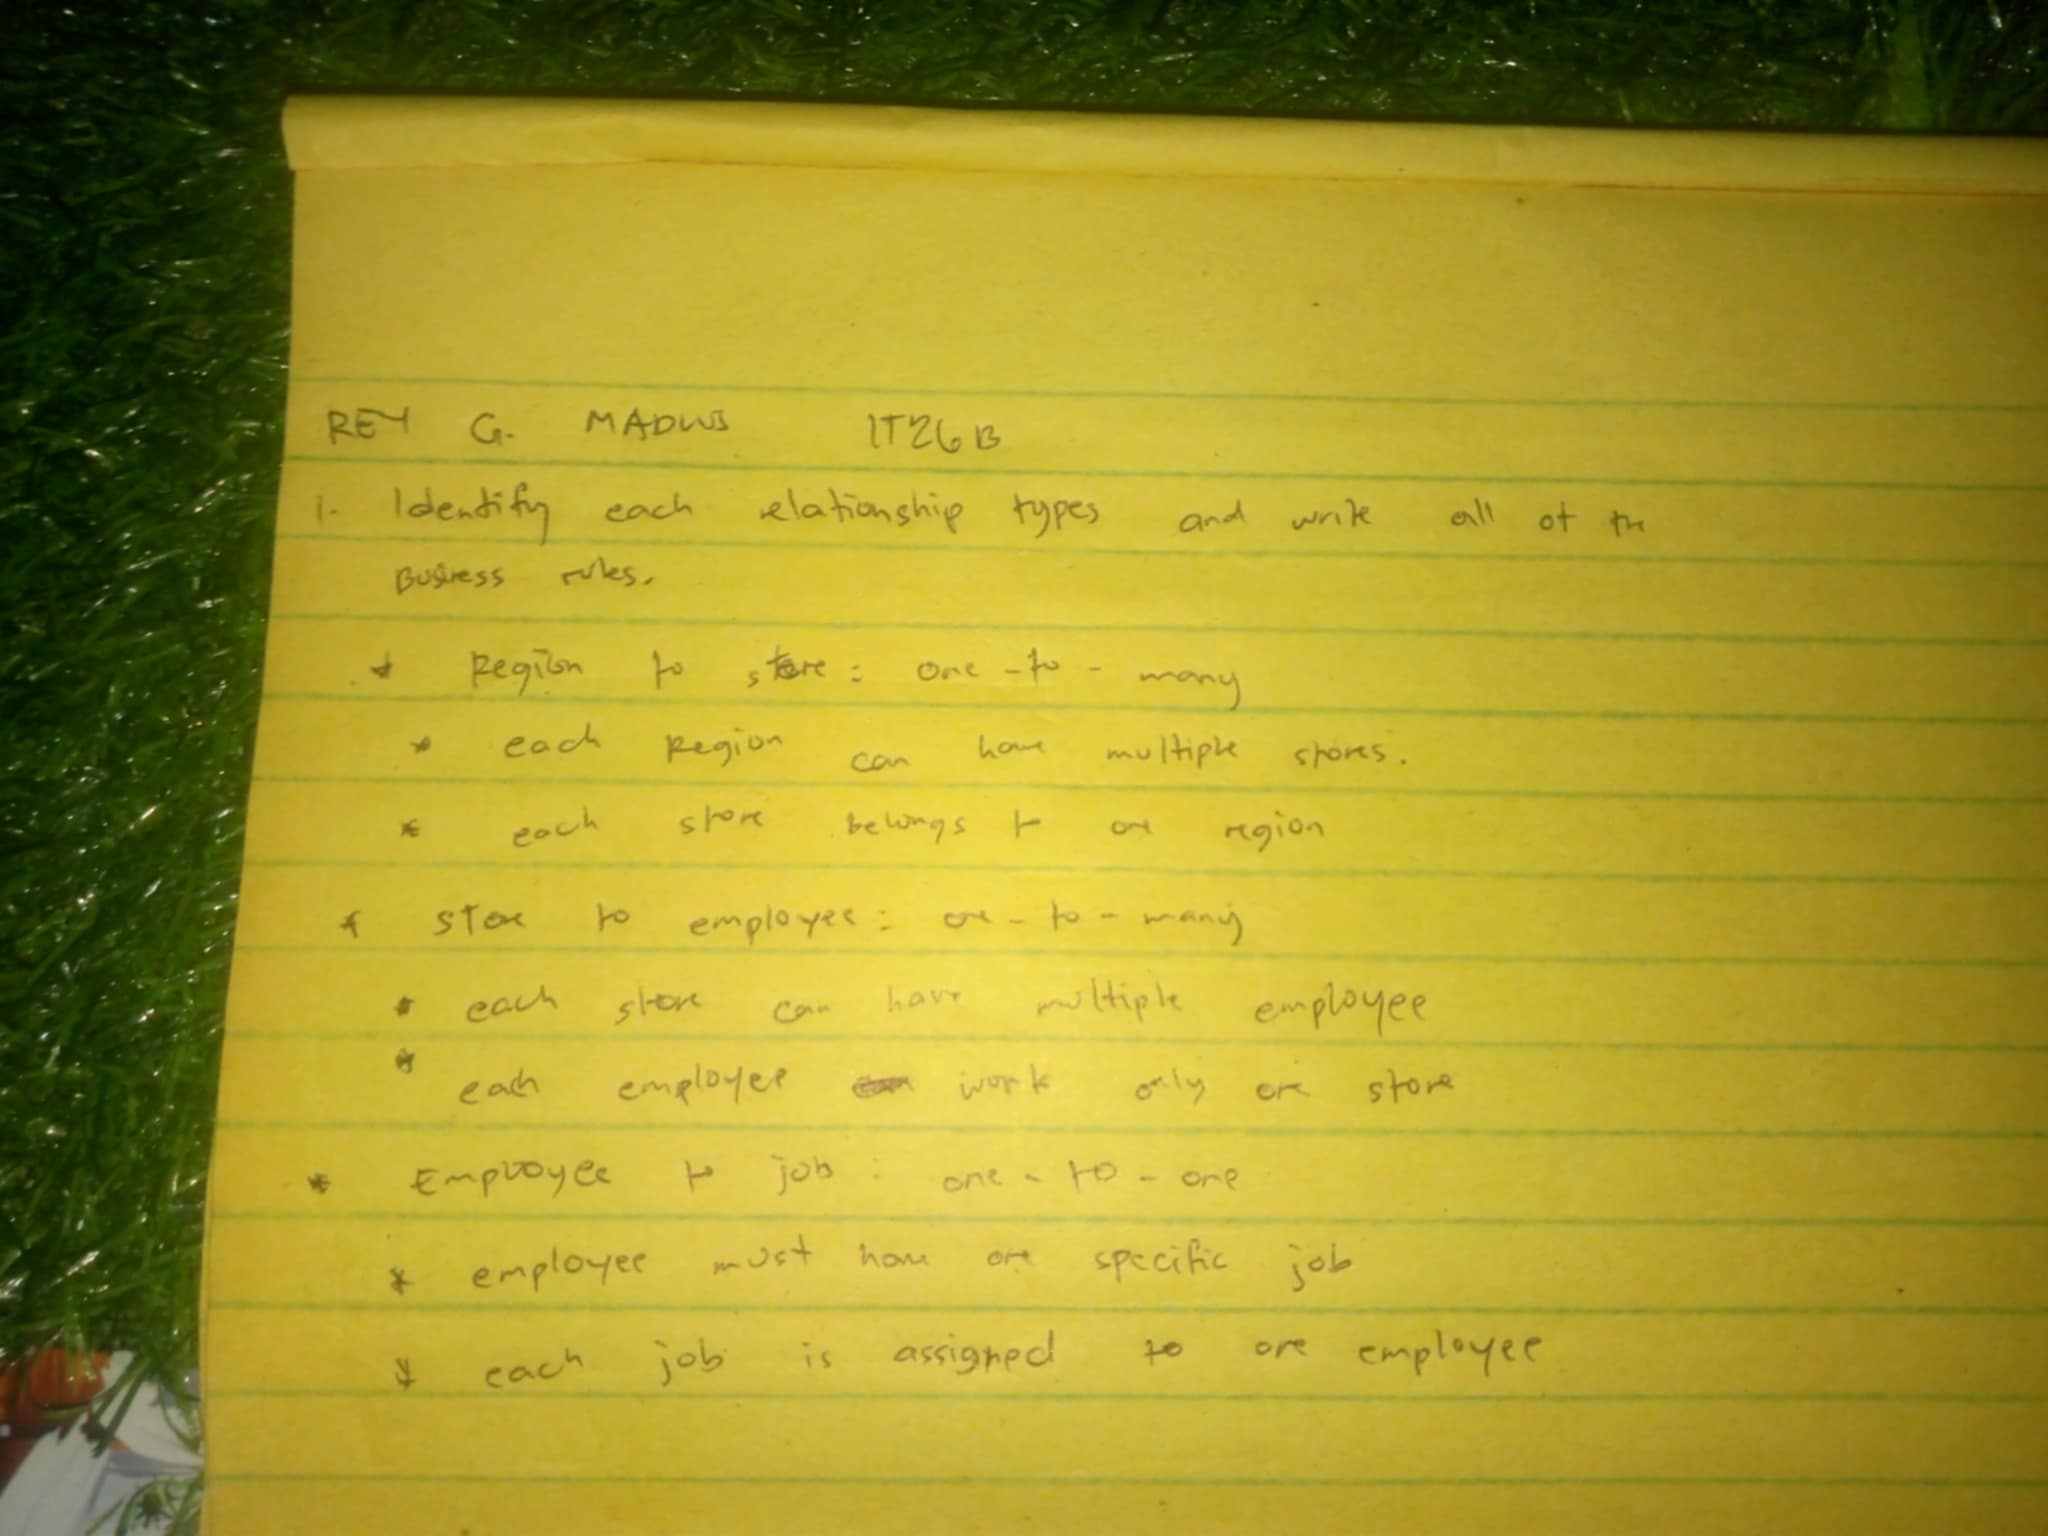 REY G. IT26B
1. Identify each relationship types and write all of the
Business rules.
* Region to store : one - to - many
* each Region can have multiple stores.
* each store belongs to one region
* store to employee : one - to - many
* each store can have multiple employee
* each employee work only one store
* Employee to job : one - to - one
* employee must have one specific job
* each job is assigned to one employee